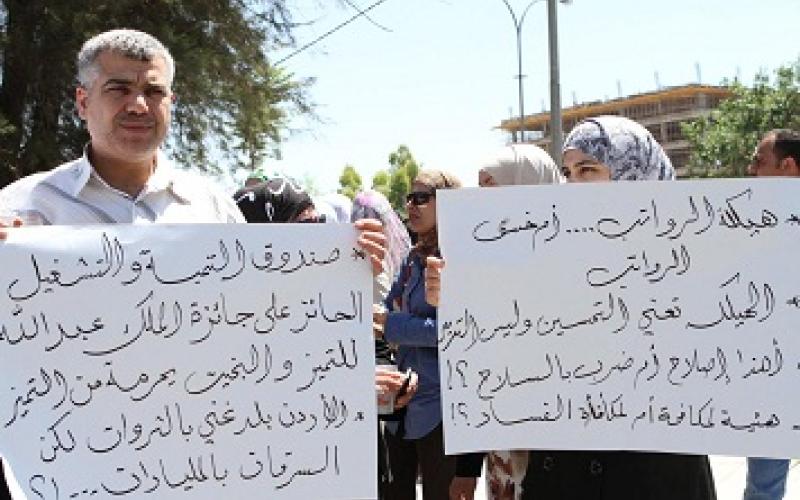 * هيكلة الرواتب .... أم خسى
الرواتب
* الهيكلة تعني التحسين وليس
* أهذا إصلاح أم ضرب بالسلاح ؟!
هيئة لمكافحة أم لمكافأة الفساد ؟!
* صندوق التنمية والتشغيل
الحائز على جائزة الملك عبدالله
للتميز و البخيت يحرمه من التميز
* الأردن بلد غني بالثروات لكن
السرقات بالمليارات ... !؟